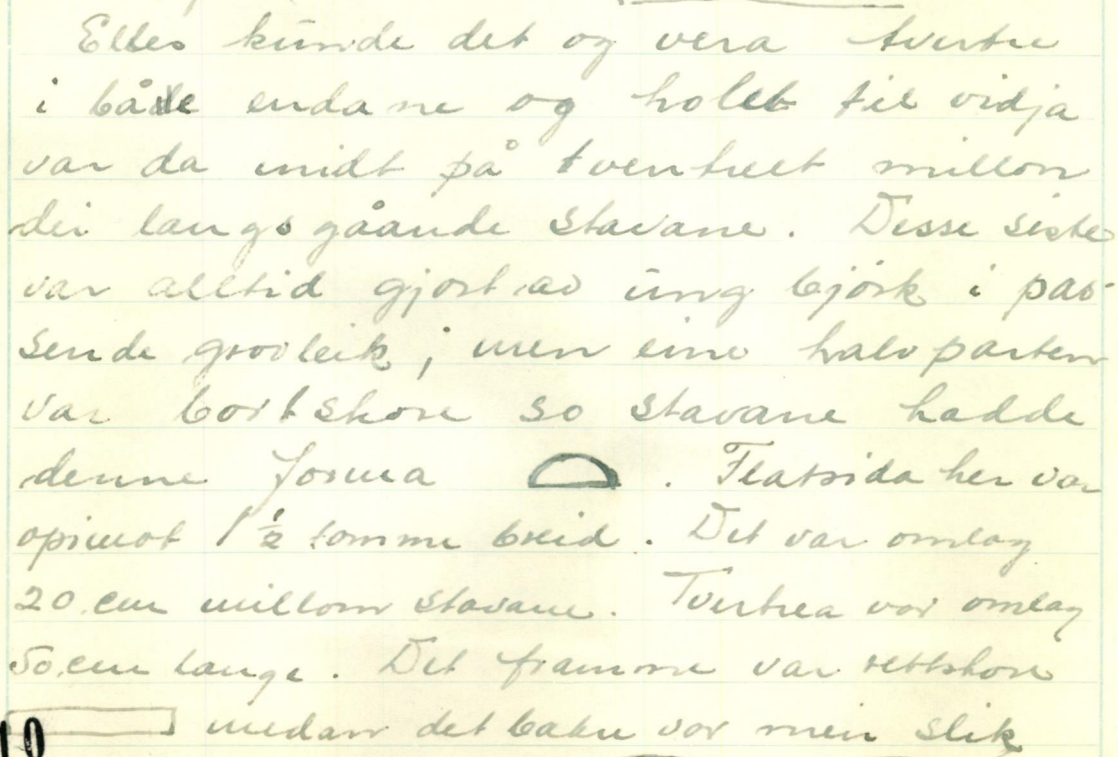 Elles kunde det og vera tvertre
i både endane og holet til vidja
var da midt på tvertreet millom
dei langsgåande stavane. Desse siste
var alltid gjort av ung bjørk i pas-
sende grovleik; men eine halvparten
var bortskore so stavane hadde
denne forma . Flatsida her var
opimot 1 ½ tomme breid. Det var omlag
20 cm millom stavane. Tvertrea var omlag
50 cm lange. Det framme var rettskore
medan det bake var meir slik
10